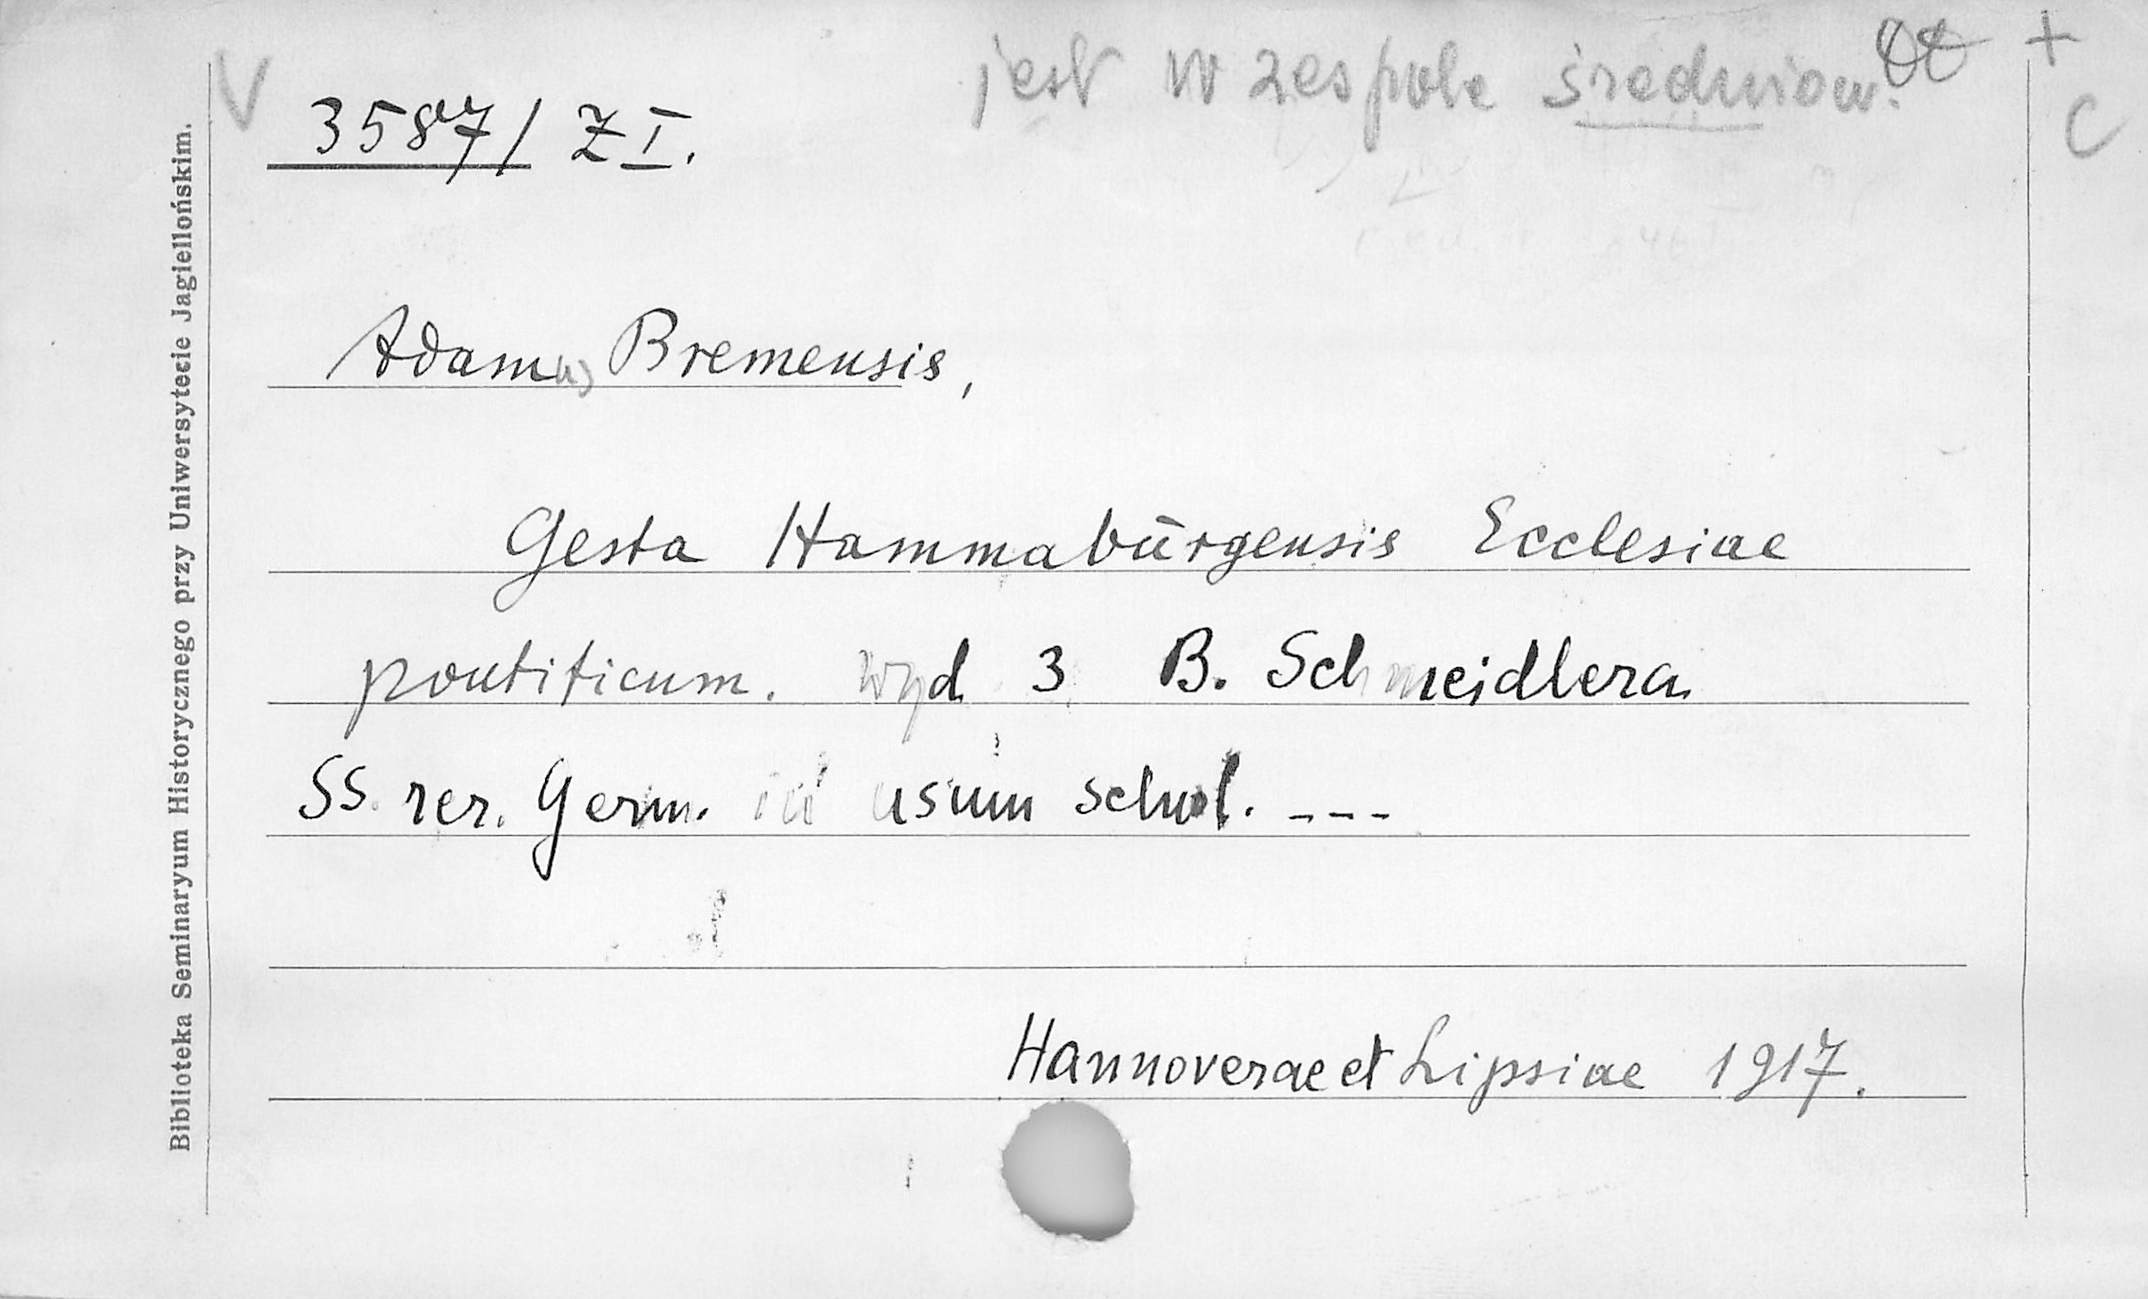 V jest w zespole średniow. +
3587/ Z I. C
Adamus Bremensis,
Gesta Hammabūrgensis Ecclesiae
pontificum. wyd 3 B. Schmeidlera
SS. rer. Germ. in usum schol. ---
Hannoverae et Lipsiae 1917.
Biblioteka Seminaryum Historycznego przy Uniwersytecie Jagiellońskim.